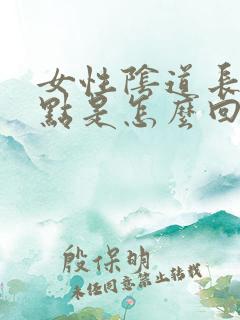 女性陰道長
點是怎麼回
殷保明
未经同意禁止转载